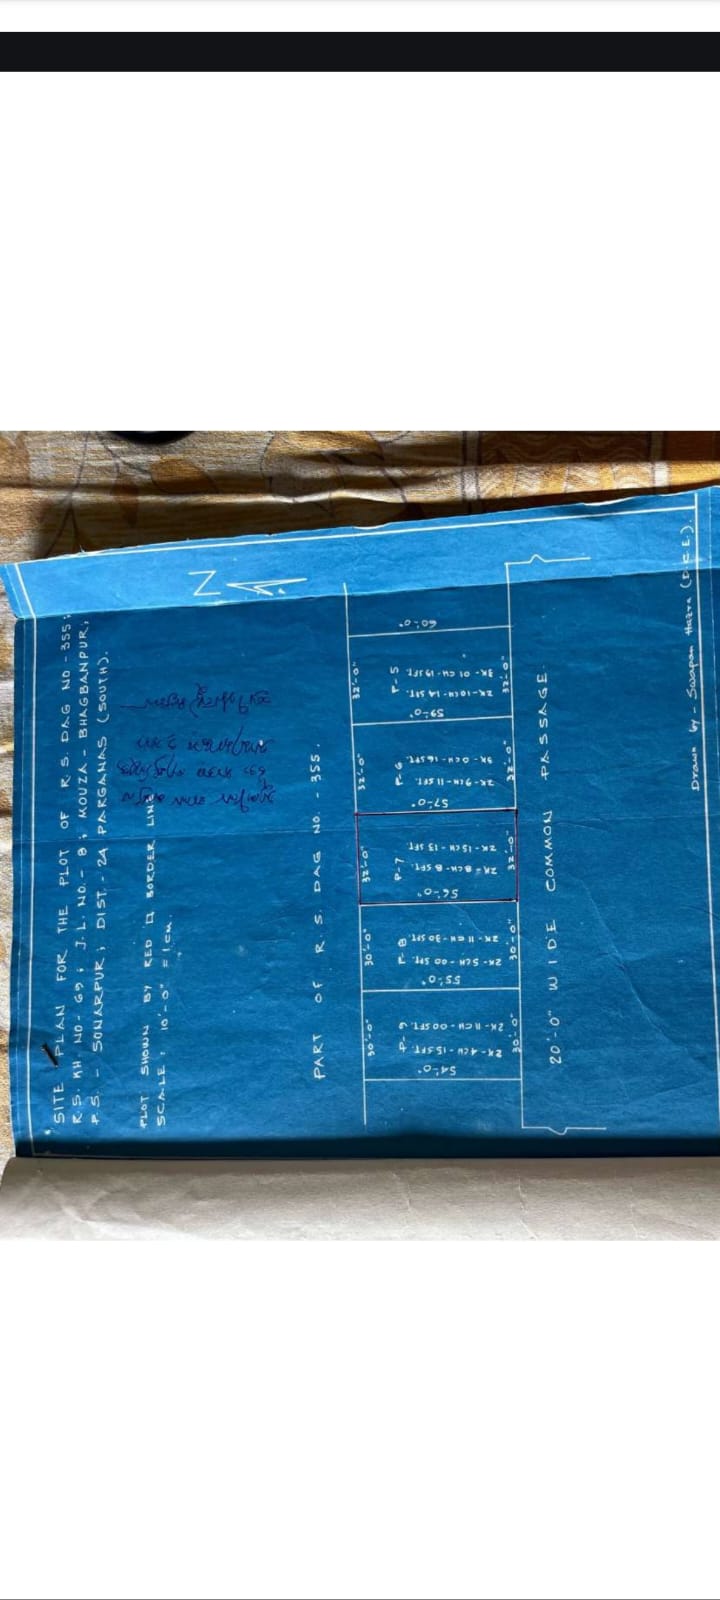 SITE PLAN FOR THE PLOT OF R.S. DAG NO - 355;
R.S. KH NO- 69; J.L. NO.- 8; MOUZA - BHAGBANPUR;
P.S. - SONARPUR; DIST. - 24 PARGANAS (SOUTH).
PLOT SHOWN BY RED BORDER LINE
SCALE: 10'-0" = 1cm.
N
PART OF R. S. DAG NO. - 355.
30'-0" 30'-0" 32'-0" 32'-0" 32'-0"
54'-0"
2K - 4CH - 15 SFT.
2K - 11CH - 00 SFT.
55'-0"
2K - 5CH - 00 SFT.
P-8
2K - 11CH - 30 SFT.
56'-0"
2K = 8CH - 8 SFT.
P-7
2K - 15CH - 13 SFT.
57'-0"
2K - 9CH - 11 SFT.
P-6
3K - 0CH - 16 SFT.
59'-0"
2K - 10CH - 14 SFT.
P-5
3K - 01CH - 19 SFT.
60'-0"
30'-0" 30'-0" 32'-0" 32'-0" 32'-0"
20'-0" WIDE COMMON PASSAGE.
Drawn by - Swapan Hazra (D.C.E.).